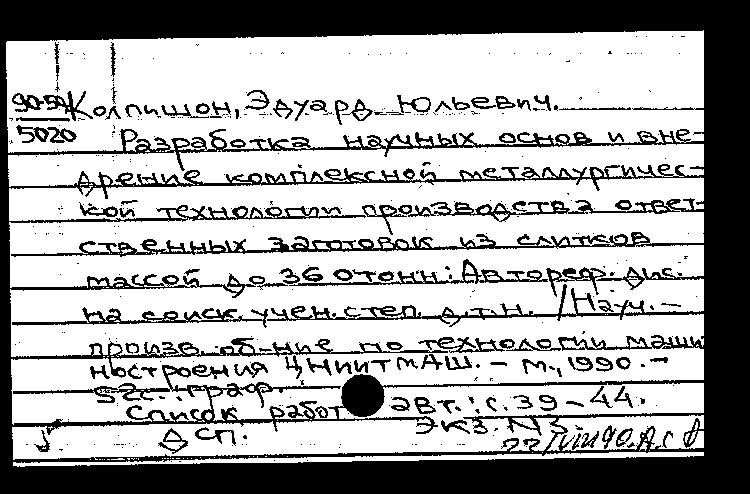 90-5А/5020
Колпишон, Эдуард Юльевич.
Разработка научных основ и вне-
дрение комплексной металлургичес-
кой технологии производства ответ-
ственных заготовок из слитков
массой до 360 тонн: Автореф. дис.
на соиск. учен. степ. д.т.н. /Науч.-
произв. об-ние по технологии маши
ностроения ЦНИИТМАШ. - М., 1990. -
52с.: граф.
Список работ авт.: с. 39-44.
Дсп. Экз. N3.
22/VIII 90.